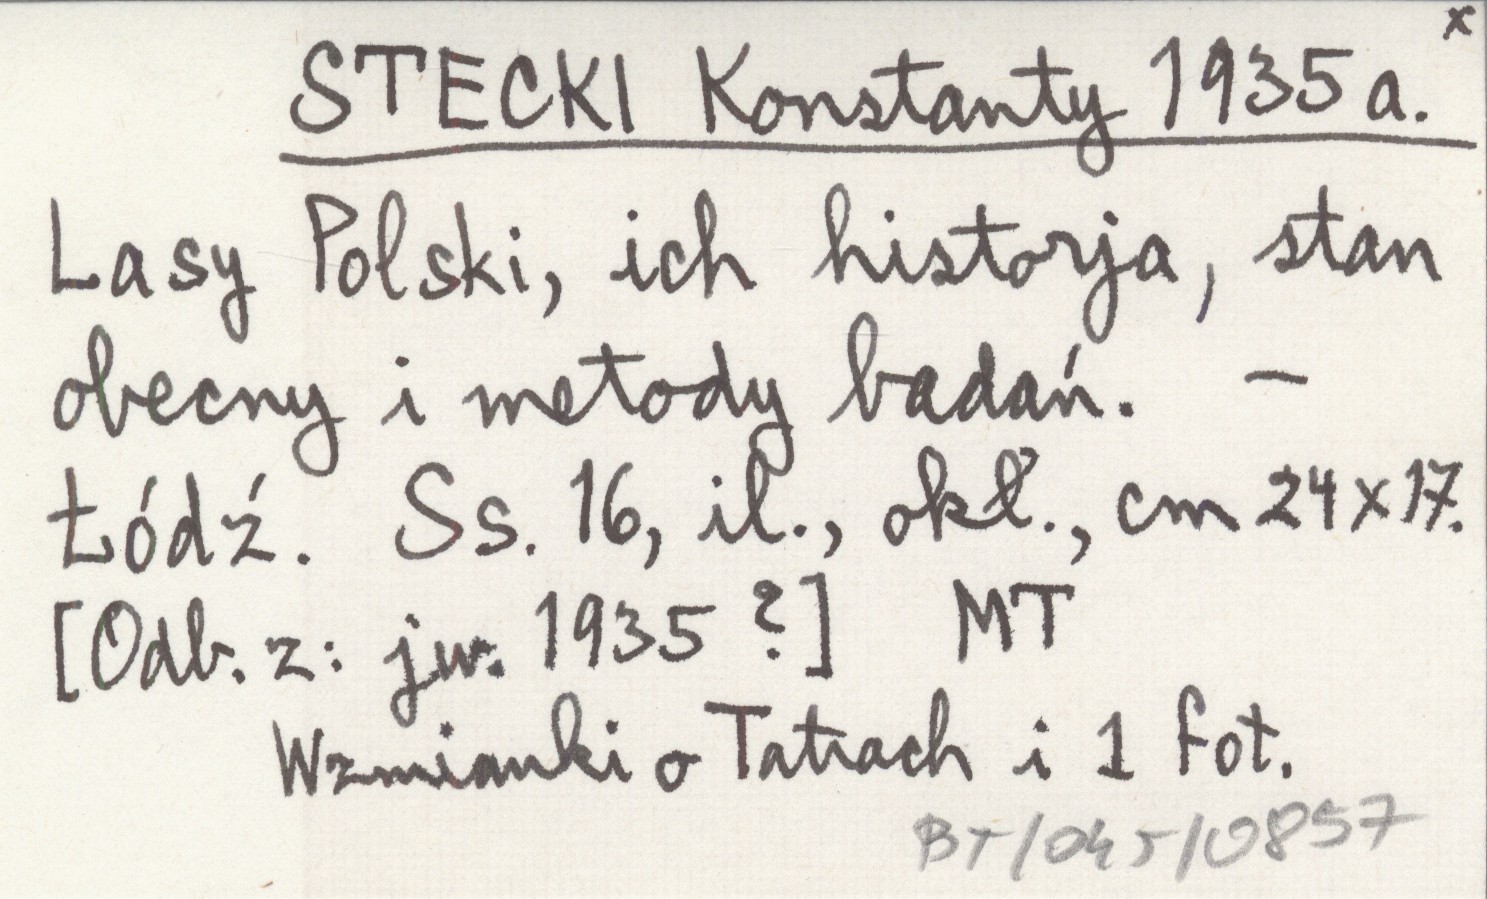 x
STECKI Konstanty 1935a.
Lasy Polski, ich historja, stan
obecny i metody badań. —
Łódź. Ss. 16, il., okł., cm 24x17.
[Odb. z: jw. 1935 ?] MT
Wzmianki o Tatrach i 1 fot.
BT/045/0857